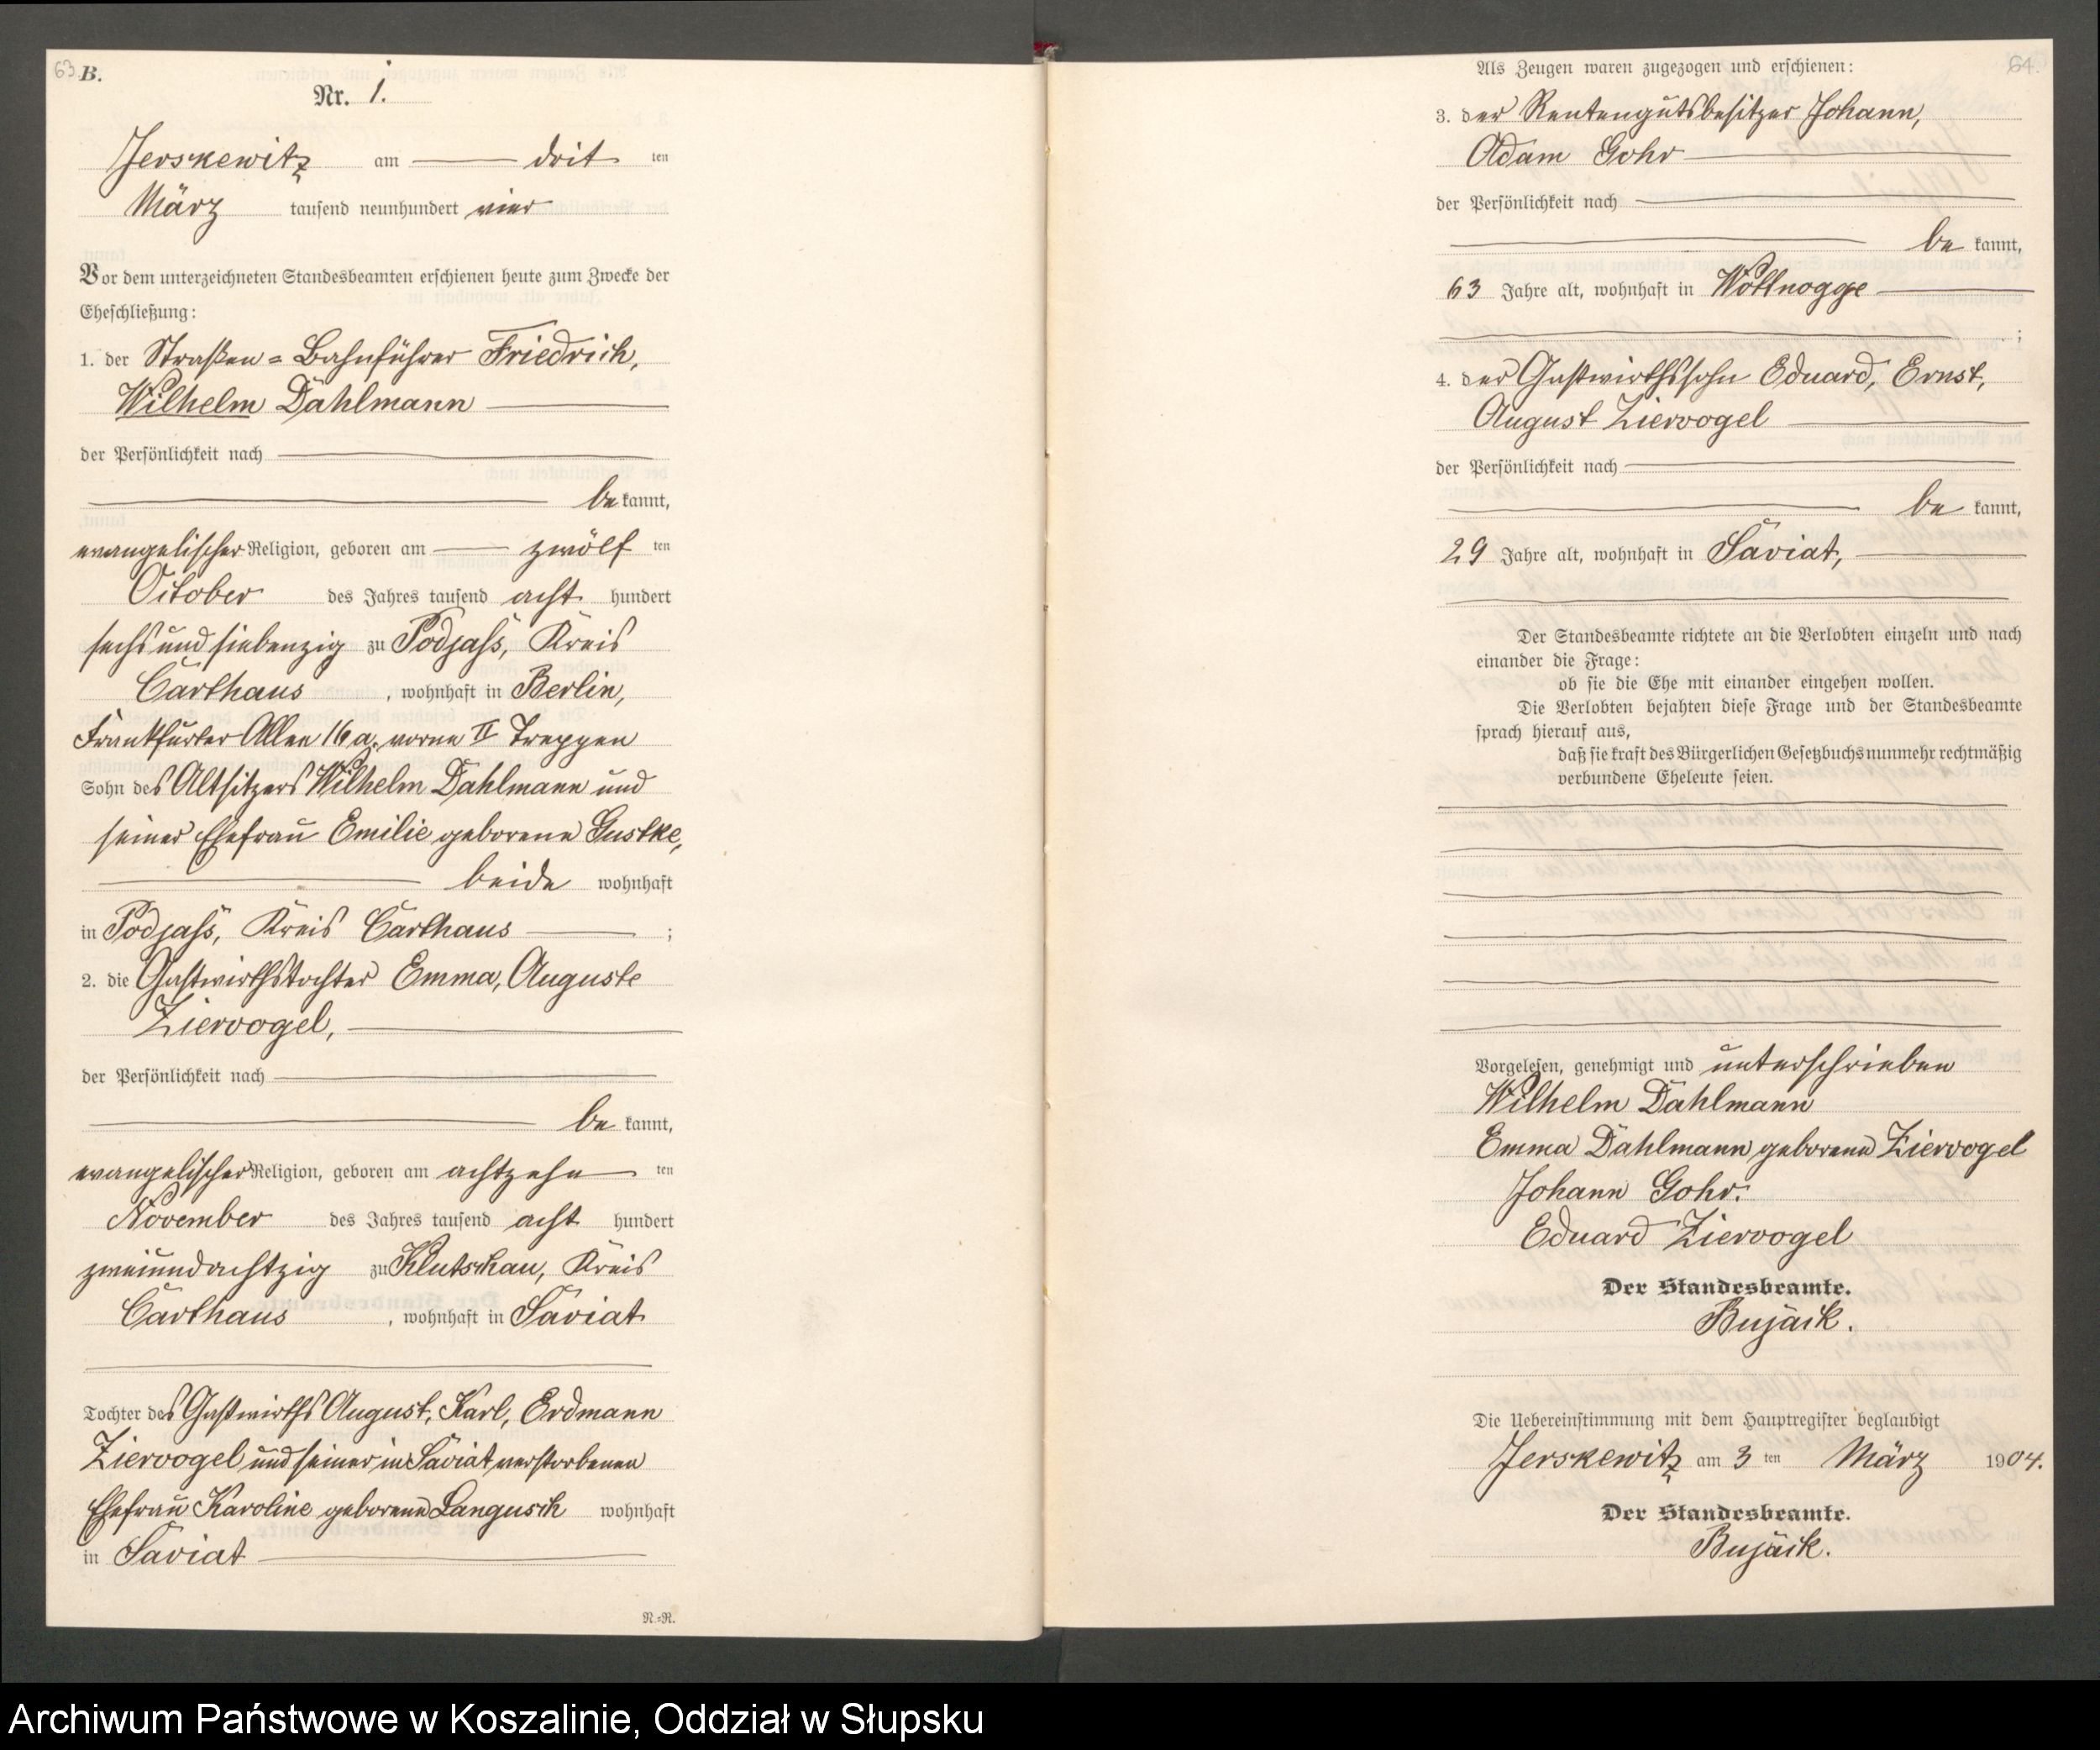 63.
B.
Nr. 1.
Jerskewitz am dritten
März tausend neunhundert vier
Vor dem unterzeichneten Standesbeamten erschienen heute zum Zwecke der
Eheschließung:
1. der Straßen=Bahnführer Friedrich,
Wilhelm Dahlmann
der Persönlichkeit nach
bekannt,
evangelischer Religion, geboren am zwölften
October des Jahres tausend achthundert
sechsundsiebenzig zu Podjaß, Kreis
Carthaus, wohnhaft in Berlin,
Frankfurter Allee 16a, vorne II Treppen
Sohn des Altsitzers Wilhelm Dahlmann und
seiner Ehefrau Emilie geborene Gustke,
beide wohnhaft
in Podjaß, Kreis Carthaus ;
2. die Gastwirthstochter Emma, Auguste
Ziervogel,
der Persönlichkeit nach
bekannt,
evangelischer Religion, geboren am achtzehnten
November des Jahres tausend achthundert
zweiundachtzig zu Klutschau, Kreis
Carthaus, wohnhaft in Saviat
Tochter des Gastwirths August, Karl, Erdmann
Ziervogel und seiner in Saviat verstorbenen
Ehefrau Karoline geborene Langusch wohnhaft
in Saviat
N.=R.
64.
Als Zeugen waren zugezogen und erschienen:
3. der Rentengutsbesitzer Johann,
Adam Gohr
der Persönlichkeit nach
bekannt,
63 Jahre alt, wohnhaft in Wottnogge
;
4. der Gastwirthssohn Eduard, Ernst,
August Ziervogel
der Persönlichkeit nach
bekannt,
29 Jahre alt, wohnhaft in Saviat,
Der Standesbeamte richtete an die Verlobten einzeln und nach
einander die Frage:
ob sie die Ehe mit einander eingehen wollen.
Die Verlobten bejahten diese Frage und der Standesbeamte
sprach hierauf aus,
daß sie kraft des Bürgerlichen Gesetzbuchs nunmehr rechtmäßig
verbundene Eheleute seien.
Vorgelesen, genehmigt und unterschrieben
Wilhelm Dahlmann
Emma Dahlmann geborene Ziervogel
Johann Gohr.
Eduard Ziervogel
Der Standesbeamte.
Bujack.
Die Uebereinstimmung mit dem Hauptregister beglaubigt
Jerskewitz am 3ten März 1904.
Der Standesbeamte.
Bujack.
Archiwum Państwowe w Koszalinie, Oddział w Słupsku